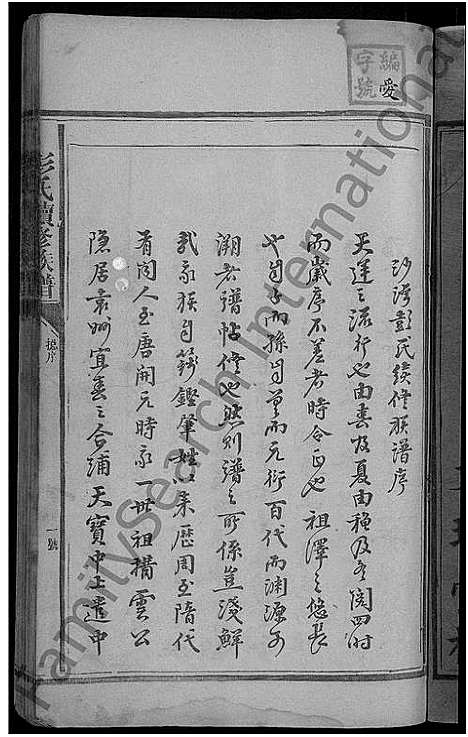 編愛字號
沙灣彭氏續修族譜序
天運之流行也由春及夏由穐及冬閱四时
而歲序不差者時令正也祖澤之悠長
也自子而孫自曾而元衍百代而渊源可
溯者譜帖修也然则譜之所係豈淺鮮
哉我族自籛鏗肇姓以来歷周至隋代
有闻人至唐開元時我一世祖搆雲公
隐居袁州宜春之合浦天寶中上遣中
彭氏續修族譜
總序
一號
FamilySearch International